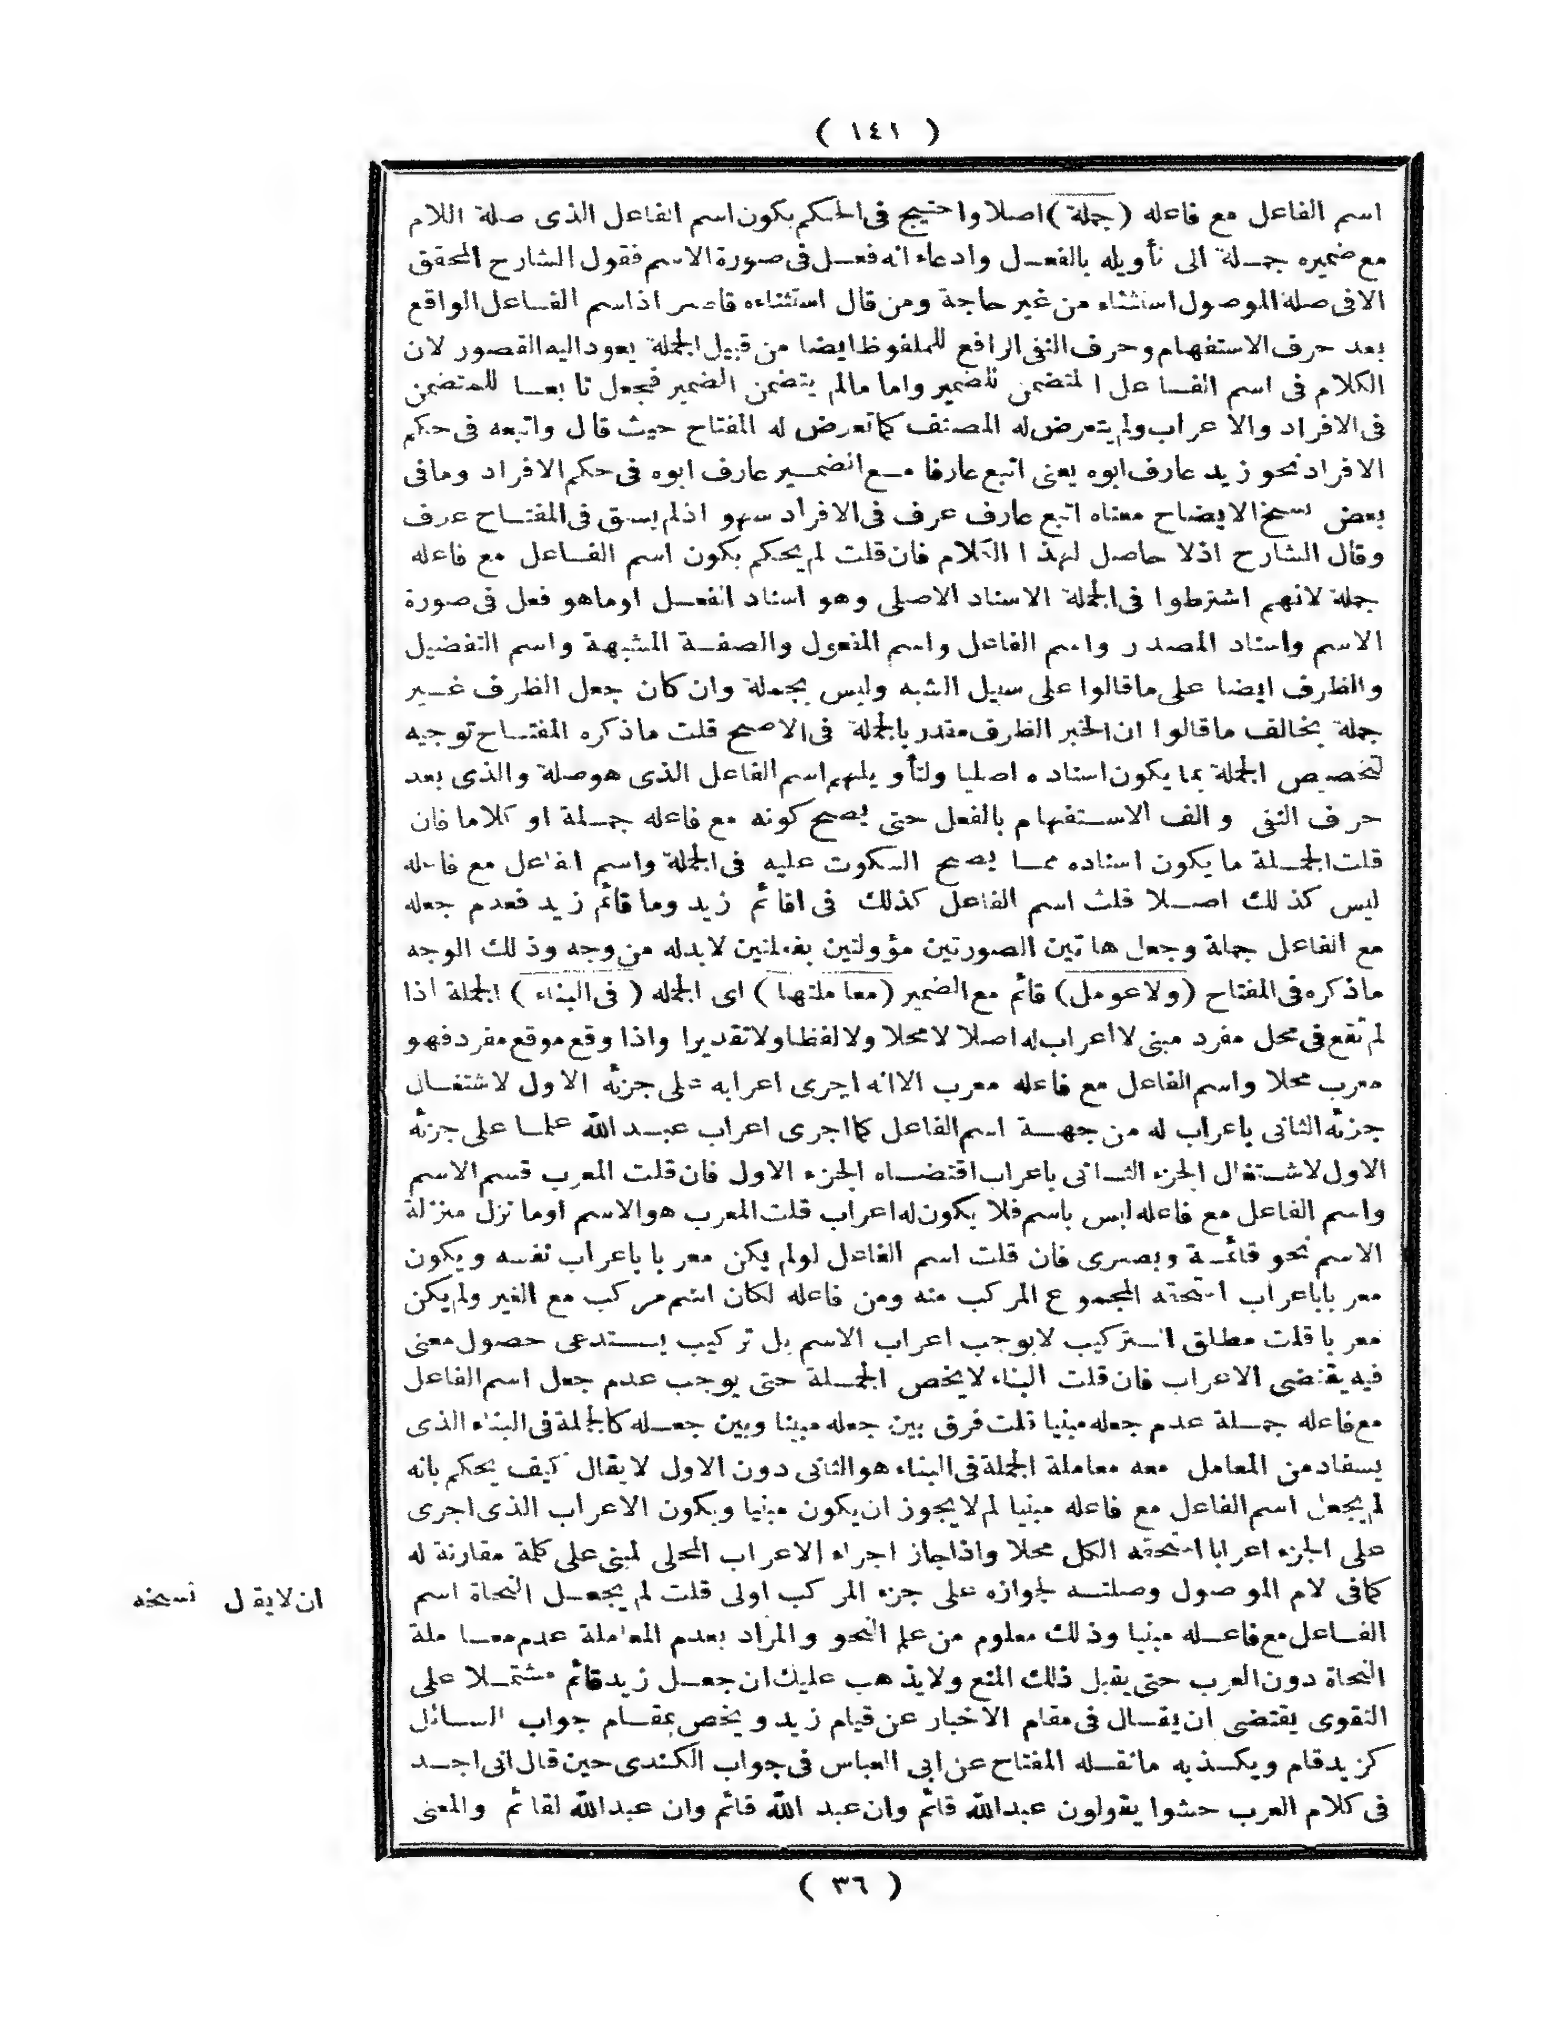 ( ١٤١ )
اسم الفاعل مع فاعله (جملة) اصلا واحتيج فى الحكم بكون اسم الفاعل الذى صلة اللام
مع ضميره جملة الى تأويله بالفعل وادعاء انه فعل فى صورة الاسم فقول الشارح المحقق
الا فى صلة الموصول استثناء من غير حاجة ومن قال استثناءه قاصر اذ اسم الفاعل الواقع
بعد حرف الاستفهام وحرف النفى الرافع للملفوظ ايضا من قبيل الجملة يعود اليه القصور لان
الكلام فى اسم الفاعل المتضمن للضمير واما مالم يتضمن الضمير فجعل تابعا للمتضمن
فى الافراد والاعراب ولم يتعرض له المصنف كما تعرض له المفتاح حيث قال واتبعه فى حكم
الافراد نحو زيد عارف ابوه يعنى اتبع عارفا مع الضمير عارف ابوه فى حكم الافراد وما فى
بعض نسخ الايضاح معناه اتبع عارف عرف فى الافراد سهو اذ لم يسق فى المفتاح عرف
وقال الشارح اذ لا حاصل لهذا الكلام فان قلت لم يحكم بكون اسم الفاعل مع فاعله
جملة لانهم اشترطوا فى الجملة الاسناد الاصلى وهو اسناد الفعل او ما هو فعل فى صورة
الاسم واسناد المصدر واسم الفاعل واسم المفعول والصفة المشبهة واسم التفضيل
والظرف ايضا على ما قالوا على سبيل الشبه وليس بجملة وان كان جعل الظرف غير
جملة يخالف ما قالوا ان الخبر الظرف مقدر بالجملة فى الاصح قلت ما ذكره المفتاح توجيه
لتخصيص الجملة بما يكون اسناده اصليا ولتأويلهم اسم الفاعل الذى هو صلة والذى بعد
حرف النفى والف الاستفهام بالفعل حتى يصح كونه مع فاعله جملة او كلاما فان
قلت الجملة ما يكون اسناده مما يصح السكوت عليه فى الجملة واسم الفاعل مع فاعله
ليس كذلك اصلا قلت اسم الفاعل كذلك فى اقائم زيد وما قائم زيد فعدم جعله
مع الفاعل جملة وجعل هاتين الصورتين مؤولتين بفعلتين لا بد له من وجه وذلك الوجه
ما ذكره فى المفتاح (ولا عومل) قائم مع الضمير (معاملتها) اى الجمله (فى البناء) الجملة اذا
لم تقع فى محل مفرد مبنى لا اعراب له اصلا لا محلا ولا لفظا ولا تقديرا واذا وقع موقع مفرد فهو
معرب محلا واسم الفاعل مع فاعله معرب الا انه اجرى اعرابه على جزئه الاول لاشتغال
جزئه الثانى باعراب له من جهة اسم الفاعل كما اجرى اعراب عبد الله علما على جزئه
الاول لاشتغال الجزء الثانى باعراب اقتضاه الجزء الاول فان قلت المعرب قسم الاسم
واسم الفاعل مع فاعله ليس باسم فلا يكون له اعراب قلت المعرب هو الاسم او ما نزل منزلة
الاسم نحو قائمة وبصرى فان قلت اسم الفاعل لو لم يكن معربا باعراب نفسه ويكون
معربا باعراب استحقه المجموع المركب منه ومن فاعله لكان اسم مركب مع الغير ولم يكن
معربا قلت مطلق التركيب لا يوجب اعراب الاسم بل تركيب يستدعى حصول معنى
فيه يقتضى الاعراب فان قلت البناء لا يخص الجملة حتى يوجب عدم جعل اسم الفاعل
مع فاعله جملة عدم جعله مبنيا قلت فرق بين جعله مبينا وبين جعله كالجملة فى البناء الذى
يسفاد من المعامل معه معاملة الجملة فى البناء هو الثانى دون الاول لا يقال كيف يحكم بانه
لم يجعل اسم الفاعل مع فاعله مبنيا لم لا يجوز ان يكون مبنيا ويكون الاعراب الذى اجرى
على الجزء اعرابا استحقه الكل محلا واذا جاز اجراء الاعراب المحلى لمبنى على كلمة مقارنة له
كما فى لام الموصول وصلته لجوازه على جزء المركب اولى قلت لم يجعل النحاة اسم
ان لا يقال نسخه
الفاعل مع فاعله مبنيا وذلك معلوم من علم النحو والمراد بعدم المعاملة عدم معاملة
النحاة دون العرب حتى يقبل ذلك المنع ولا يذهب عليك ان جعل زيد قائم مشتملا على
التقوى يقتضى ان يقال فى مقام الاخبار عن قيام زيد ويخص بمقام جواب السائل
كزيد قام ويكذبه ما نقله المفتاح عن ابى العباس فى جواب الكندى حين قال انى اجد
فى كلام العرب حشوا يقولون عبدالله قائم وان عبد الله قائم وان عبدالله لقائم والمعنى
( ٣٦ )